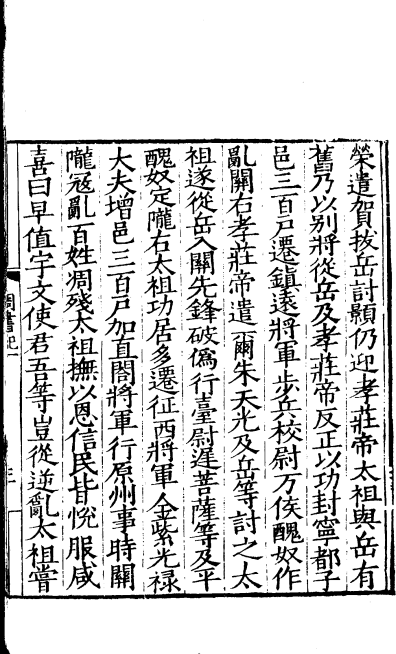 榮遣賀拔岳討顥仍迎孝莊帝太祖與岳有
舊乃以別將從岳及孝莊帝反正以功封寧都子
邑三百戶遷鎮遠將軍步兵校尉万俟醜奴作
亂關右孝莊帝遣爾朱天光及岳等討之太
祖遂從岳入關先鋒破僞行臺尉遲菩薩等及平
醜奴定隴右太祖功居多遷征西將軍金紫光祿
大夫增邑三百戶加直閤將軍行原州事時關
隴寇亂百姓凋殘太祖撫以恩信民皆悅服咸
喜曰早值宇文使君吾等豈從逆亂太祖嘗
周書紀一
三